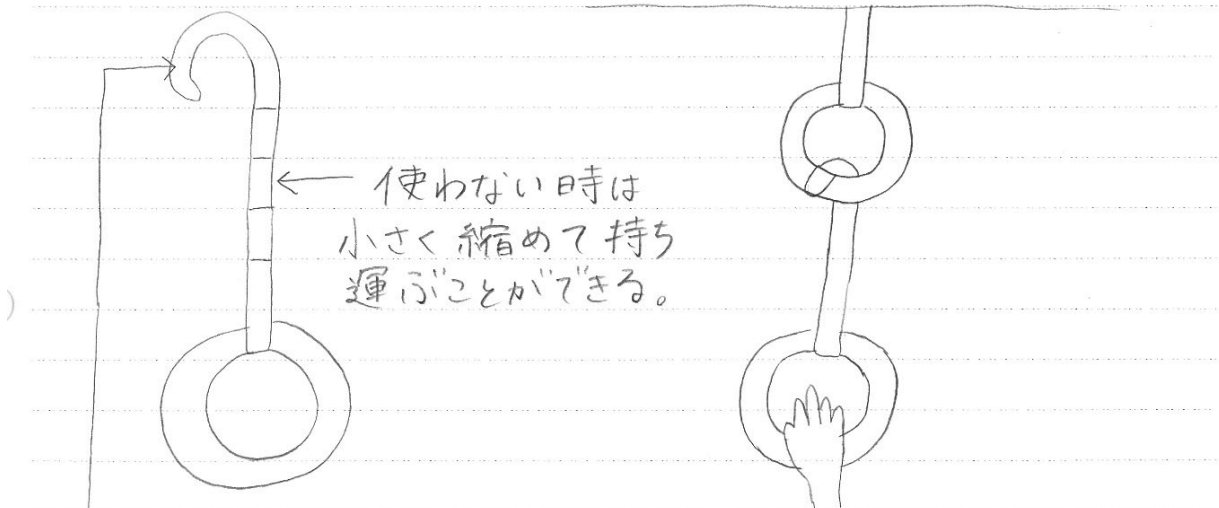 使わない時は
小さく縮めて持ち
運ぶことができる。